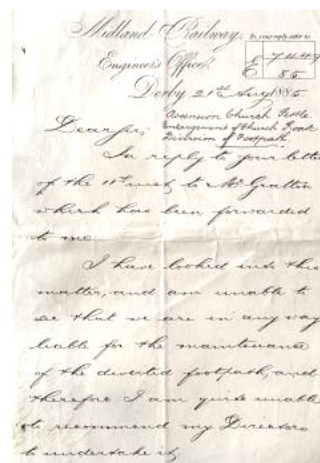 Midland Railway.
In your reply refer to
7449
E 85
Engineer's Office,
Derby 21st Aug 1885
Ascension Church Settle
Enlargement of Church Road
Diversion of Footpath.
Dear Sir,
In reply to your letter
of the 11th inst to Mr Gratton
which has been forwarded
to me
I have looked into this
matter, and am unable to
see that we are in any way
liable for the maintenance
of the diverted footpath, and
therefore I am quite unable
to recommend my Directors
to undertake it,